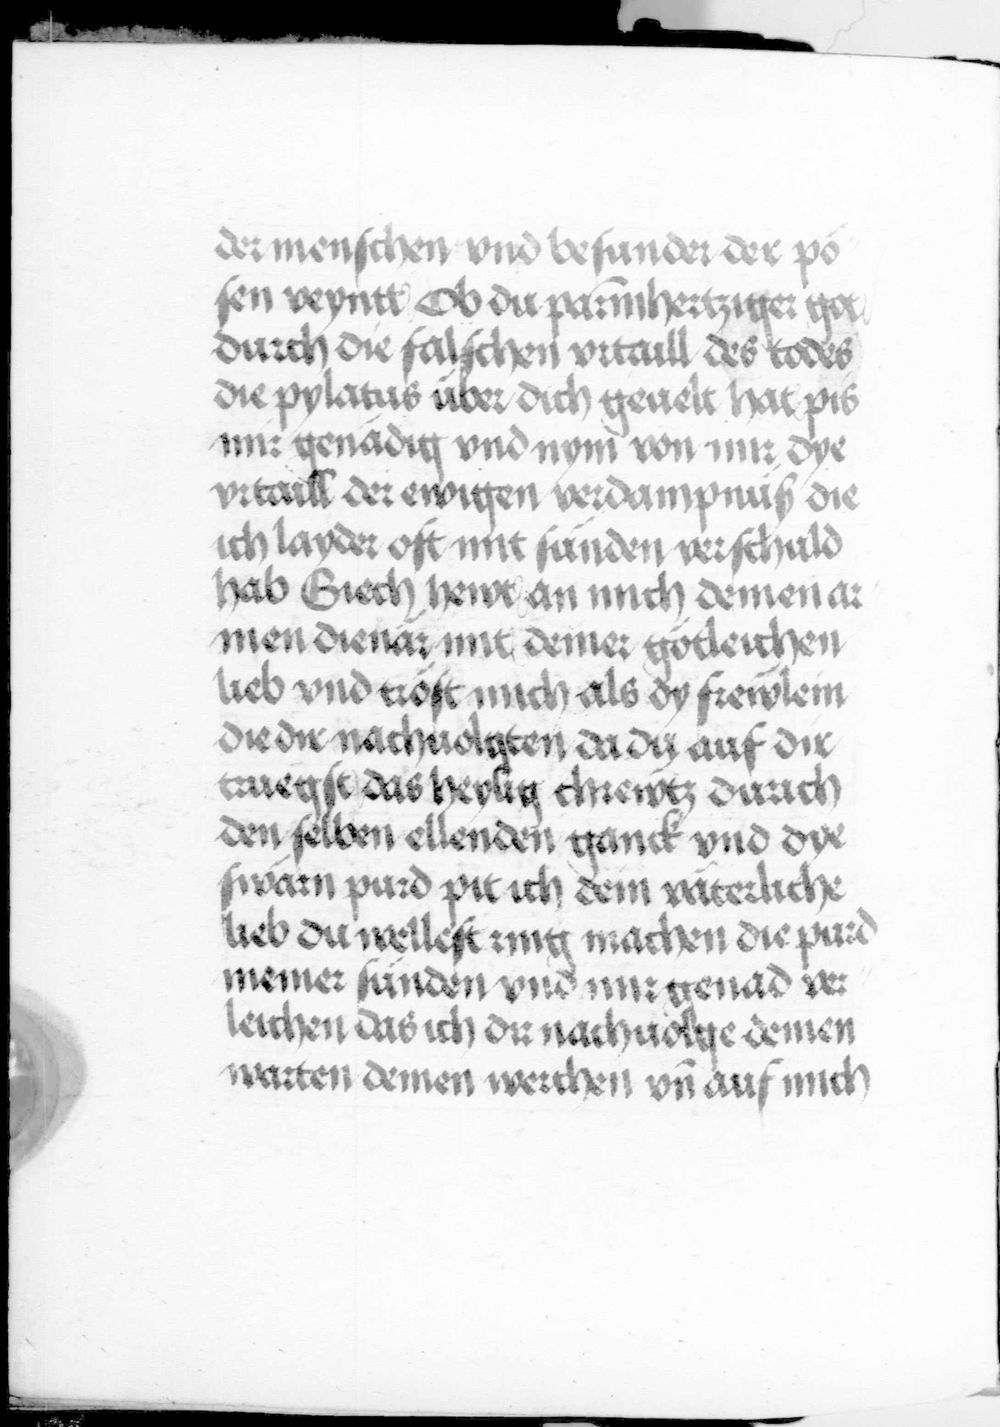 der menschen vnd besunder der pö
sen veyntt Ob du parm̄hertziger got
durch die falschen vrtaill des todes
die pylatus über dich geuelt hat pis
mir genädig vnd nym von mir dye
vrtaill der ewigen verdampnüß die
ich layder oft mit sünden verschuld
hab Siech hewt an mich deinen ar
men dienär mit deiner götleichen
lieb vnd tröst mich als dy frewlein
die dir nachuolgten da du auf dir
truegst das heylig chrewtz durich
den selben ellenden ganck vnd dye
swärn purd pit ich dein väterliche
lieb du wellest ring machen die purd
meiner sünden vnd mir genad ver
leichen das ich dir nachuolge deinen
warten deinen werchen vn̄ auf mich